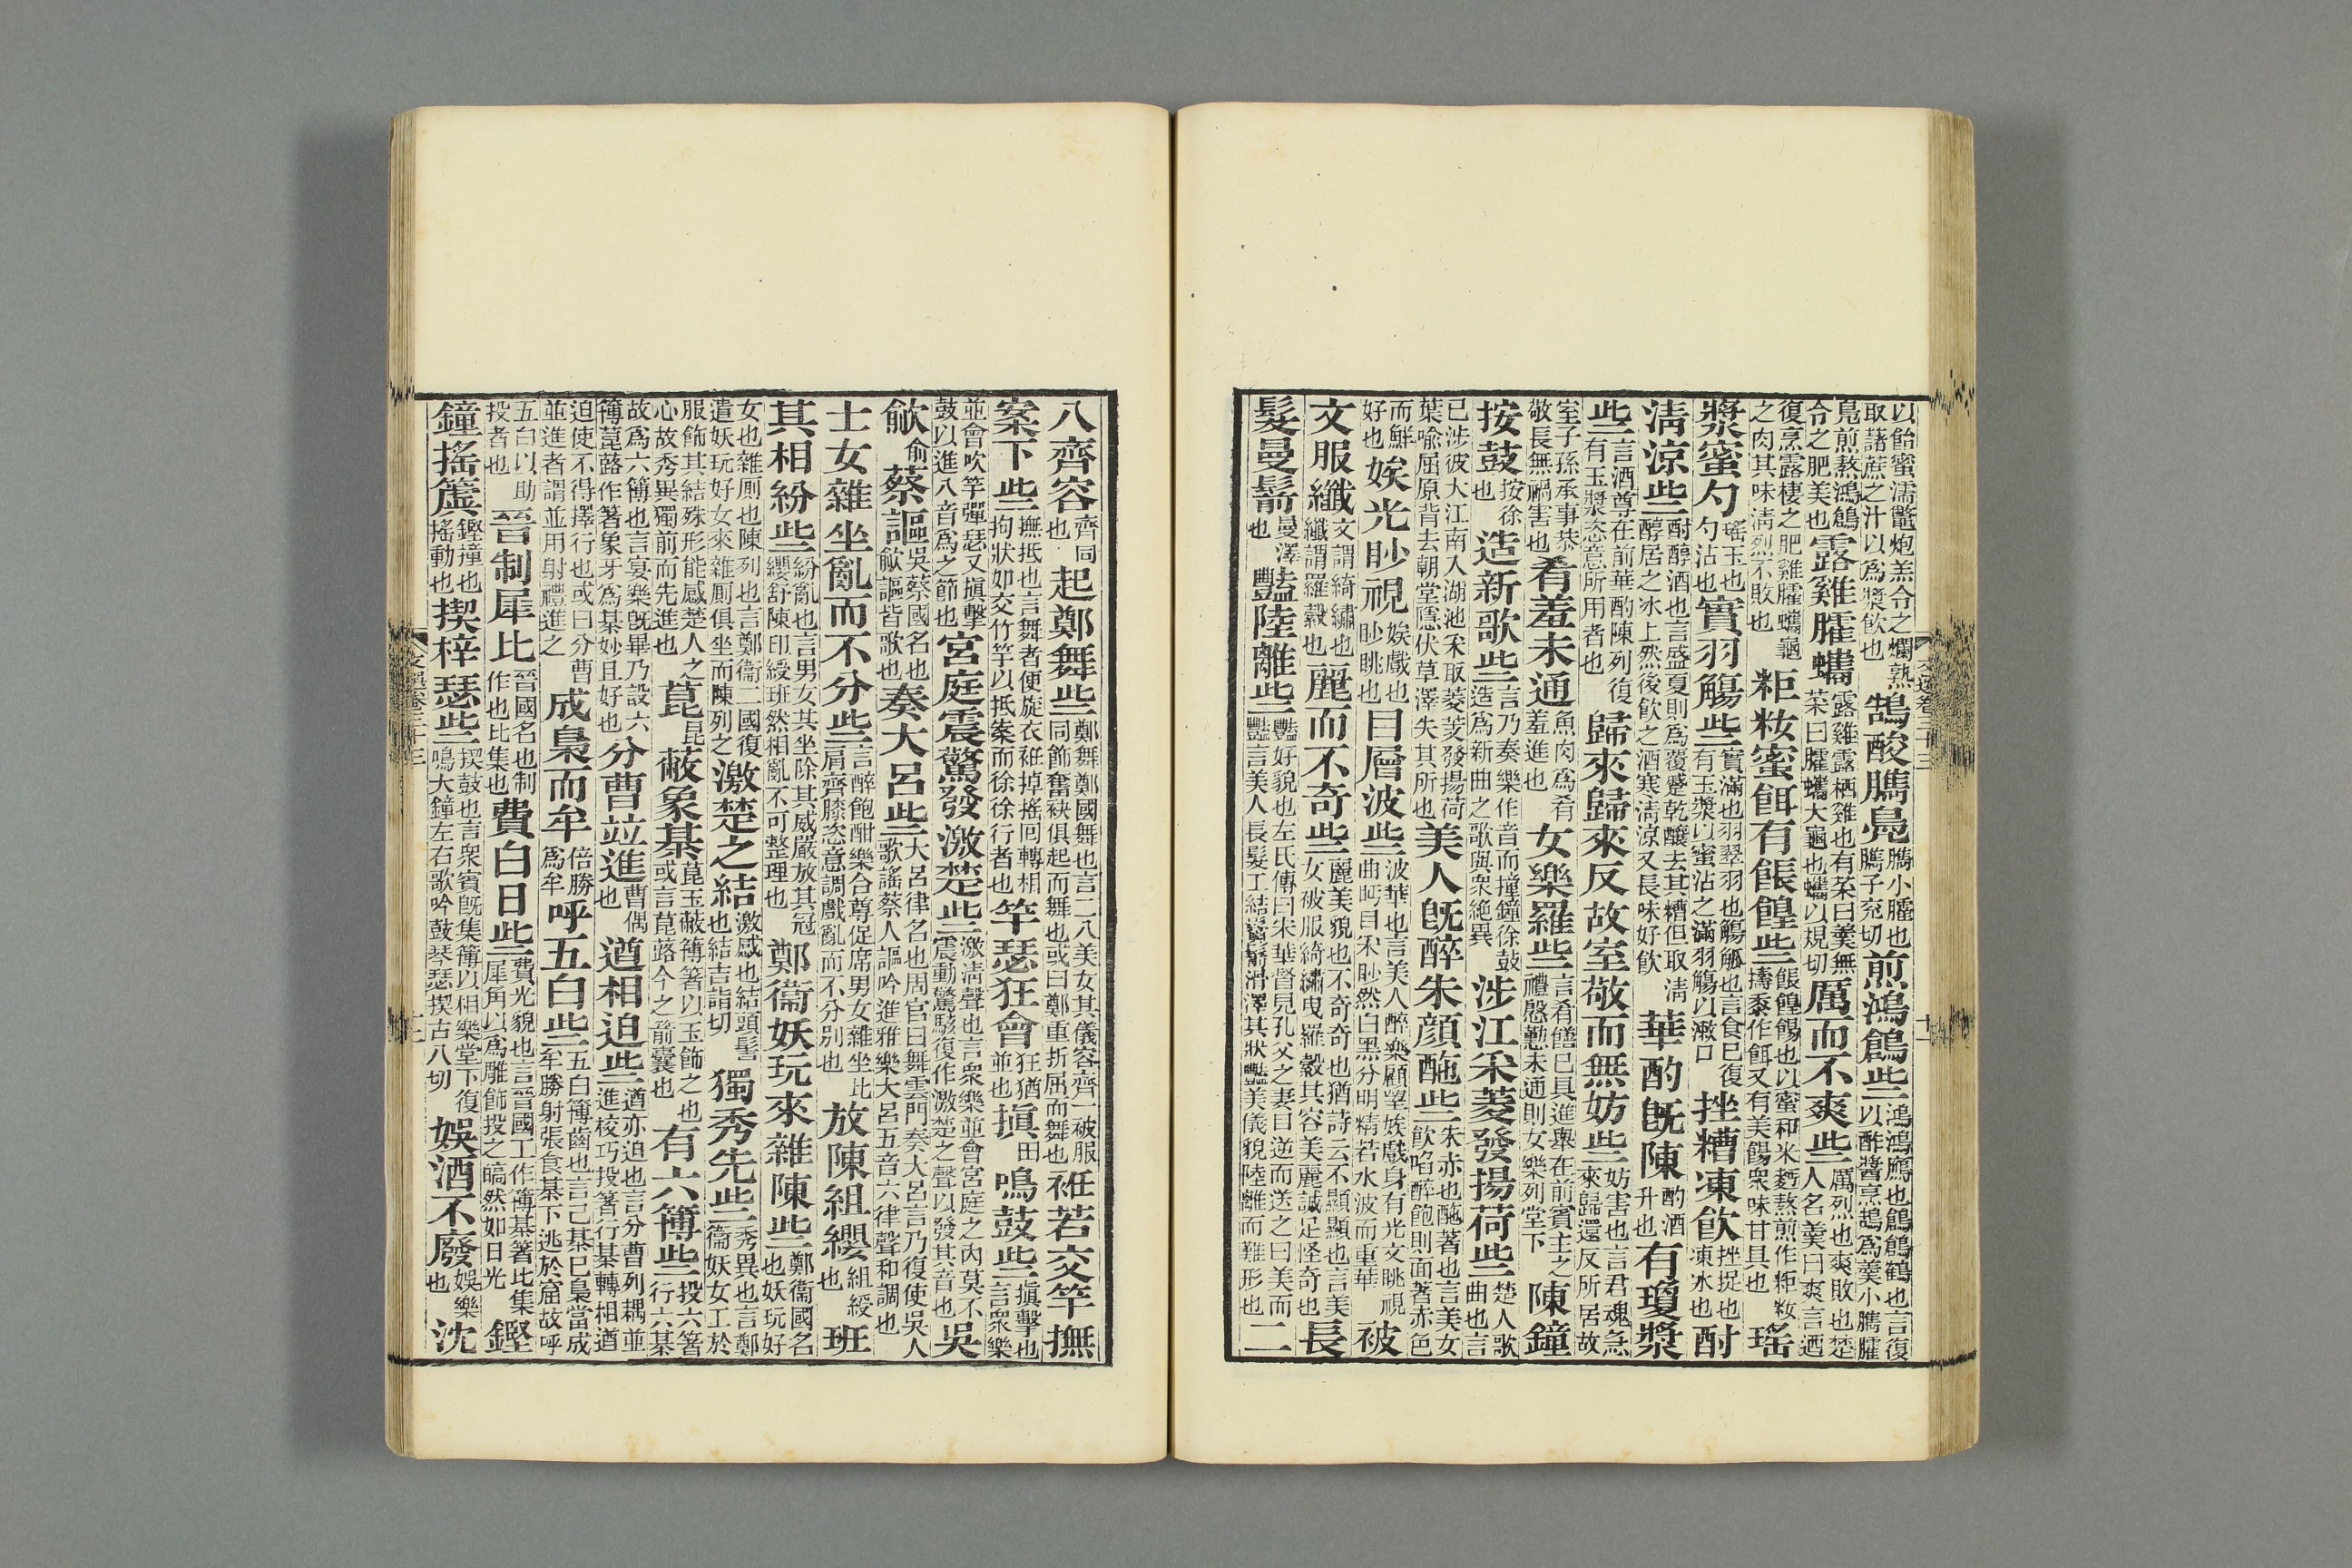 以飴蜜濡鼈炮羔令之爛熟取藷蔗之汁以爲漿飲也鵠酸臇鳧臇小臛也臇子兖切煎鴻鶬些鴻鴻鴈也鶬鶬鶴也言復以酢醬烹鵠爲羹小臇臛
鳧煎熬鴻鶬令之肥美也露雞臛蠵露雞露栖雞也有菜曰羹無菜曰臛蠵大龜也蠵以規切厲而不爽些厲烈也爽敗也楚人名羹曰爽言迺
復烹露棲之肥雞臛蠵龜之肉其味清烈不敗也粔籹蜜餌有餦餭些餦餭餳也以蜜和米麪熬煎作粔籹擣黍作餌又有美餳衆味甘具也瑤
漿蜜勺瑤玉也勺沾也實羽觴些實滿也羽翠羽也觴觚也言食已復有玉漿以蜜沾之滿羽觴以漱口挫糟凍飲挫捉也凍冰也酎
清涼些酎醇酒也言盛夏則爲覆蹙乾釀去其糟但取清醇居之冰上然後飲之酒寒清涼又長味好飲華酌旣陳酌酒升也有瓊漿
些言酒尊在前華酌陳列復有玉漿恣意所用者也歸來歸來反故室敬而無妨些妨害也言君魂急來歸還反所居故
室子孫承事恭敬長無禍害也肴羞未通魚肉爲肴羞進也女樂羅些言肴饍已具進舉在前賓主之禮慇懃未通則女樂列堂下陳鐘
按鼓按徐也造新歌些言乃奏樂作音而撞鐘徐鼓造爲新曲之歌與衆絶異涉江采菱發揚荷些楚人歌曲也言
已涉彼大江南入湖池采取菱芰發揚荷葉喻屈原背去朝堂隱伏草澤失其所也美人旣醉朱顔酡些朱赤也酡著也言美女飲啗醉飽則面著赤色
而鮮好也娭光眇視娭戲也眇眺也目層波些波華也言美人醉樂顧望娭戲身有光文眺視曲眄目采眇然白黑分明精若水波而重華被
文服纖文謂綺繡也纖謂羅縠也麗而不奇些麗美貌也不奇奇也猶詩云不顯顯也言美女被服綺繡曳羅縠其容美麗誠足怪奇也長
髮曼鬋曼澤也豔陸離些豔好貌也左氏傳曰宋華督見孔父之妻目逆而送之曰美而豔言美人長髮工結鬋鬢滑澤其狀豔美儀貌陸離而難形也二
八齊容齊同也起鄭舞些鄭舞鄭國舞也言二八美女其儀容齊一被服同飾奮袂俱起而舞也或曰鄭重折屈而舞也衽若交竿撫
案下些撫抵也言舞者便旋衣衽掉搖回轉相拘狀如交竹竿以抵案而徐徐行者也竽瑟狂會狂猶並也搷田鳴鼓些搷擊也言衆樂
並會吹竽彈瑟又搷擊鼓以進八音爲之節也宮庭震驚發激楚些激清聲也言衆樂並會宮庭之內莫不震動驚駭復作激楚之聲以發其音也吳
歈俞蔡謳吳蔡國名也歈謳皆歌也奏大呂些大呂律名也周官曰舞雲門奏大呂言乃復使吳人歌謠蔡人謳吟進雅樂大呂五音六律聲和調也
士女雜坐亂而不分些言醉飽酣樂合尊促席男女雜坐比肩齊膝恣意調戲亂而不分別也放陳組纓組綬也班
其相紛些紛亂也言男女其坐除其威嚴放其冠纓舒陳印綬班然相亂不可整理也鄭衞妖玩來雜陳些鄭衞國名也妖玩好
女也雜厠也陳列也言鄭衞二國復遣妖玩好女來雜厠俱坐而陳列之激楚之結激感也結頭髻也結吉詣切獨秀先些秀異也言鄭衞妖女工於
服飾其結殊形能感楚人之心故秀異獨前而先進也菎昆蔽象棊菎玉蔽簙箸以玉飾之也或言菎蕗今之箭囊也有六簙些投六箸行六棊
故爲六簙也言宴樂旣畢乃設六簙菎蕗作箸象牙爲棊妙且好也分曹竝進曹偶也遒相迫些遒亦迫也言分曹列耦並進校巧投箸行棊轉相遒
迫使不得擇行也或曰分曹並進者謂並用射禮進之成梟而牟倍勝爲牟呼五白些五白簙齒也言己棊已梟當成牟勝射張食棊下逃於窟故呼
五白以助投者也晉制犀比晉國名也制作也比集也費白日些費光貌也言晉國工作簙棊箸比集犀角以爲雕飾投之皜然如日光鏗
鐘搖簴鏗撞也搖動也揳梓瑟些揳鼓也言衆賓旣集簙以相樂堂下復鳴大鐘左右歌吟鼓琴瑟揳古八切娛酒不廢娛樂也沈